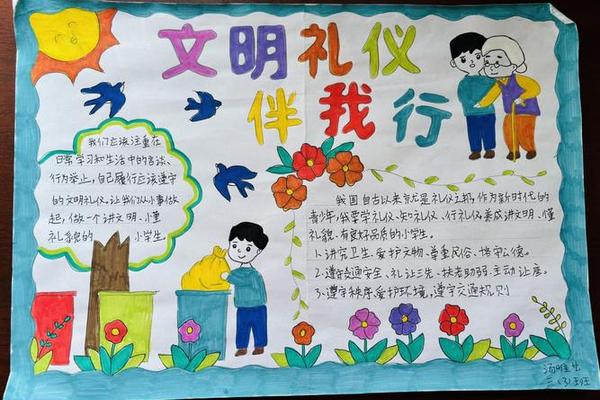 文明礼仪
伴我行
我们应该注重在
日常学习和生活中的言谈、
行为举止，自己履行应该遵守
的文明礼仪。让我们从小事做
起，做一个讲文明、懂
礼貌的 小学生。
我国自古以来就是礼仪之邦，作为新时代的
青少年，我要学礼仪、知礼仪、行礼仪，养成讲文明、懂
礼貌、有良好品质的小学生。
1、讲究卫生、爱护文物、尊重民俗、恪守公德。
2、遵守交通安全、礼让三先、扶老助弱、主动让座。
3、遵守秩序、爱护环境，遵守交通规则
三（3）班